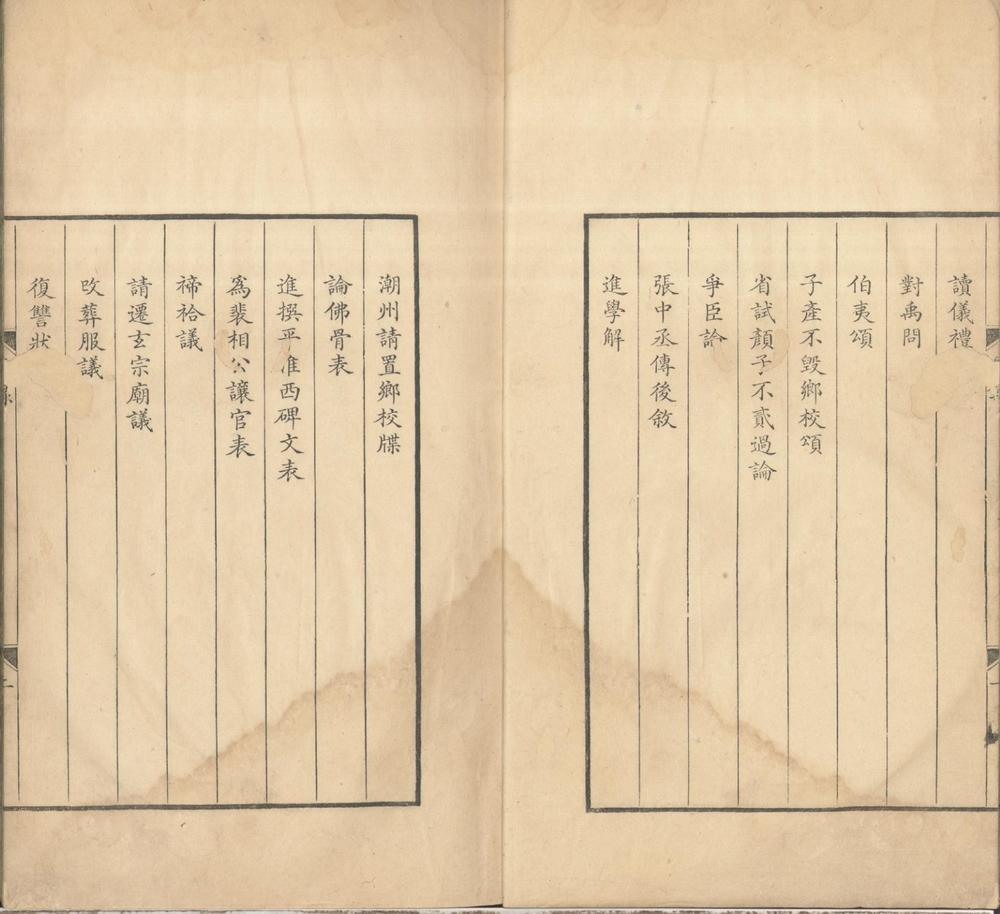 讀儀禮
對禹問
伯夷頌
子產不毀鄉校頌
省試顏子不貳過論
爭臣論
張中丞傳後敘
進學解
潮州請置鄉校牒
論佛骨表
進撰平淮西碑文表
爲裴相公讓官表
禘祫議
請遷玄宗廟議
改葬服議
復讐狀